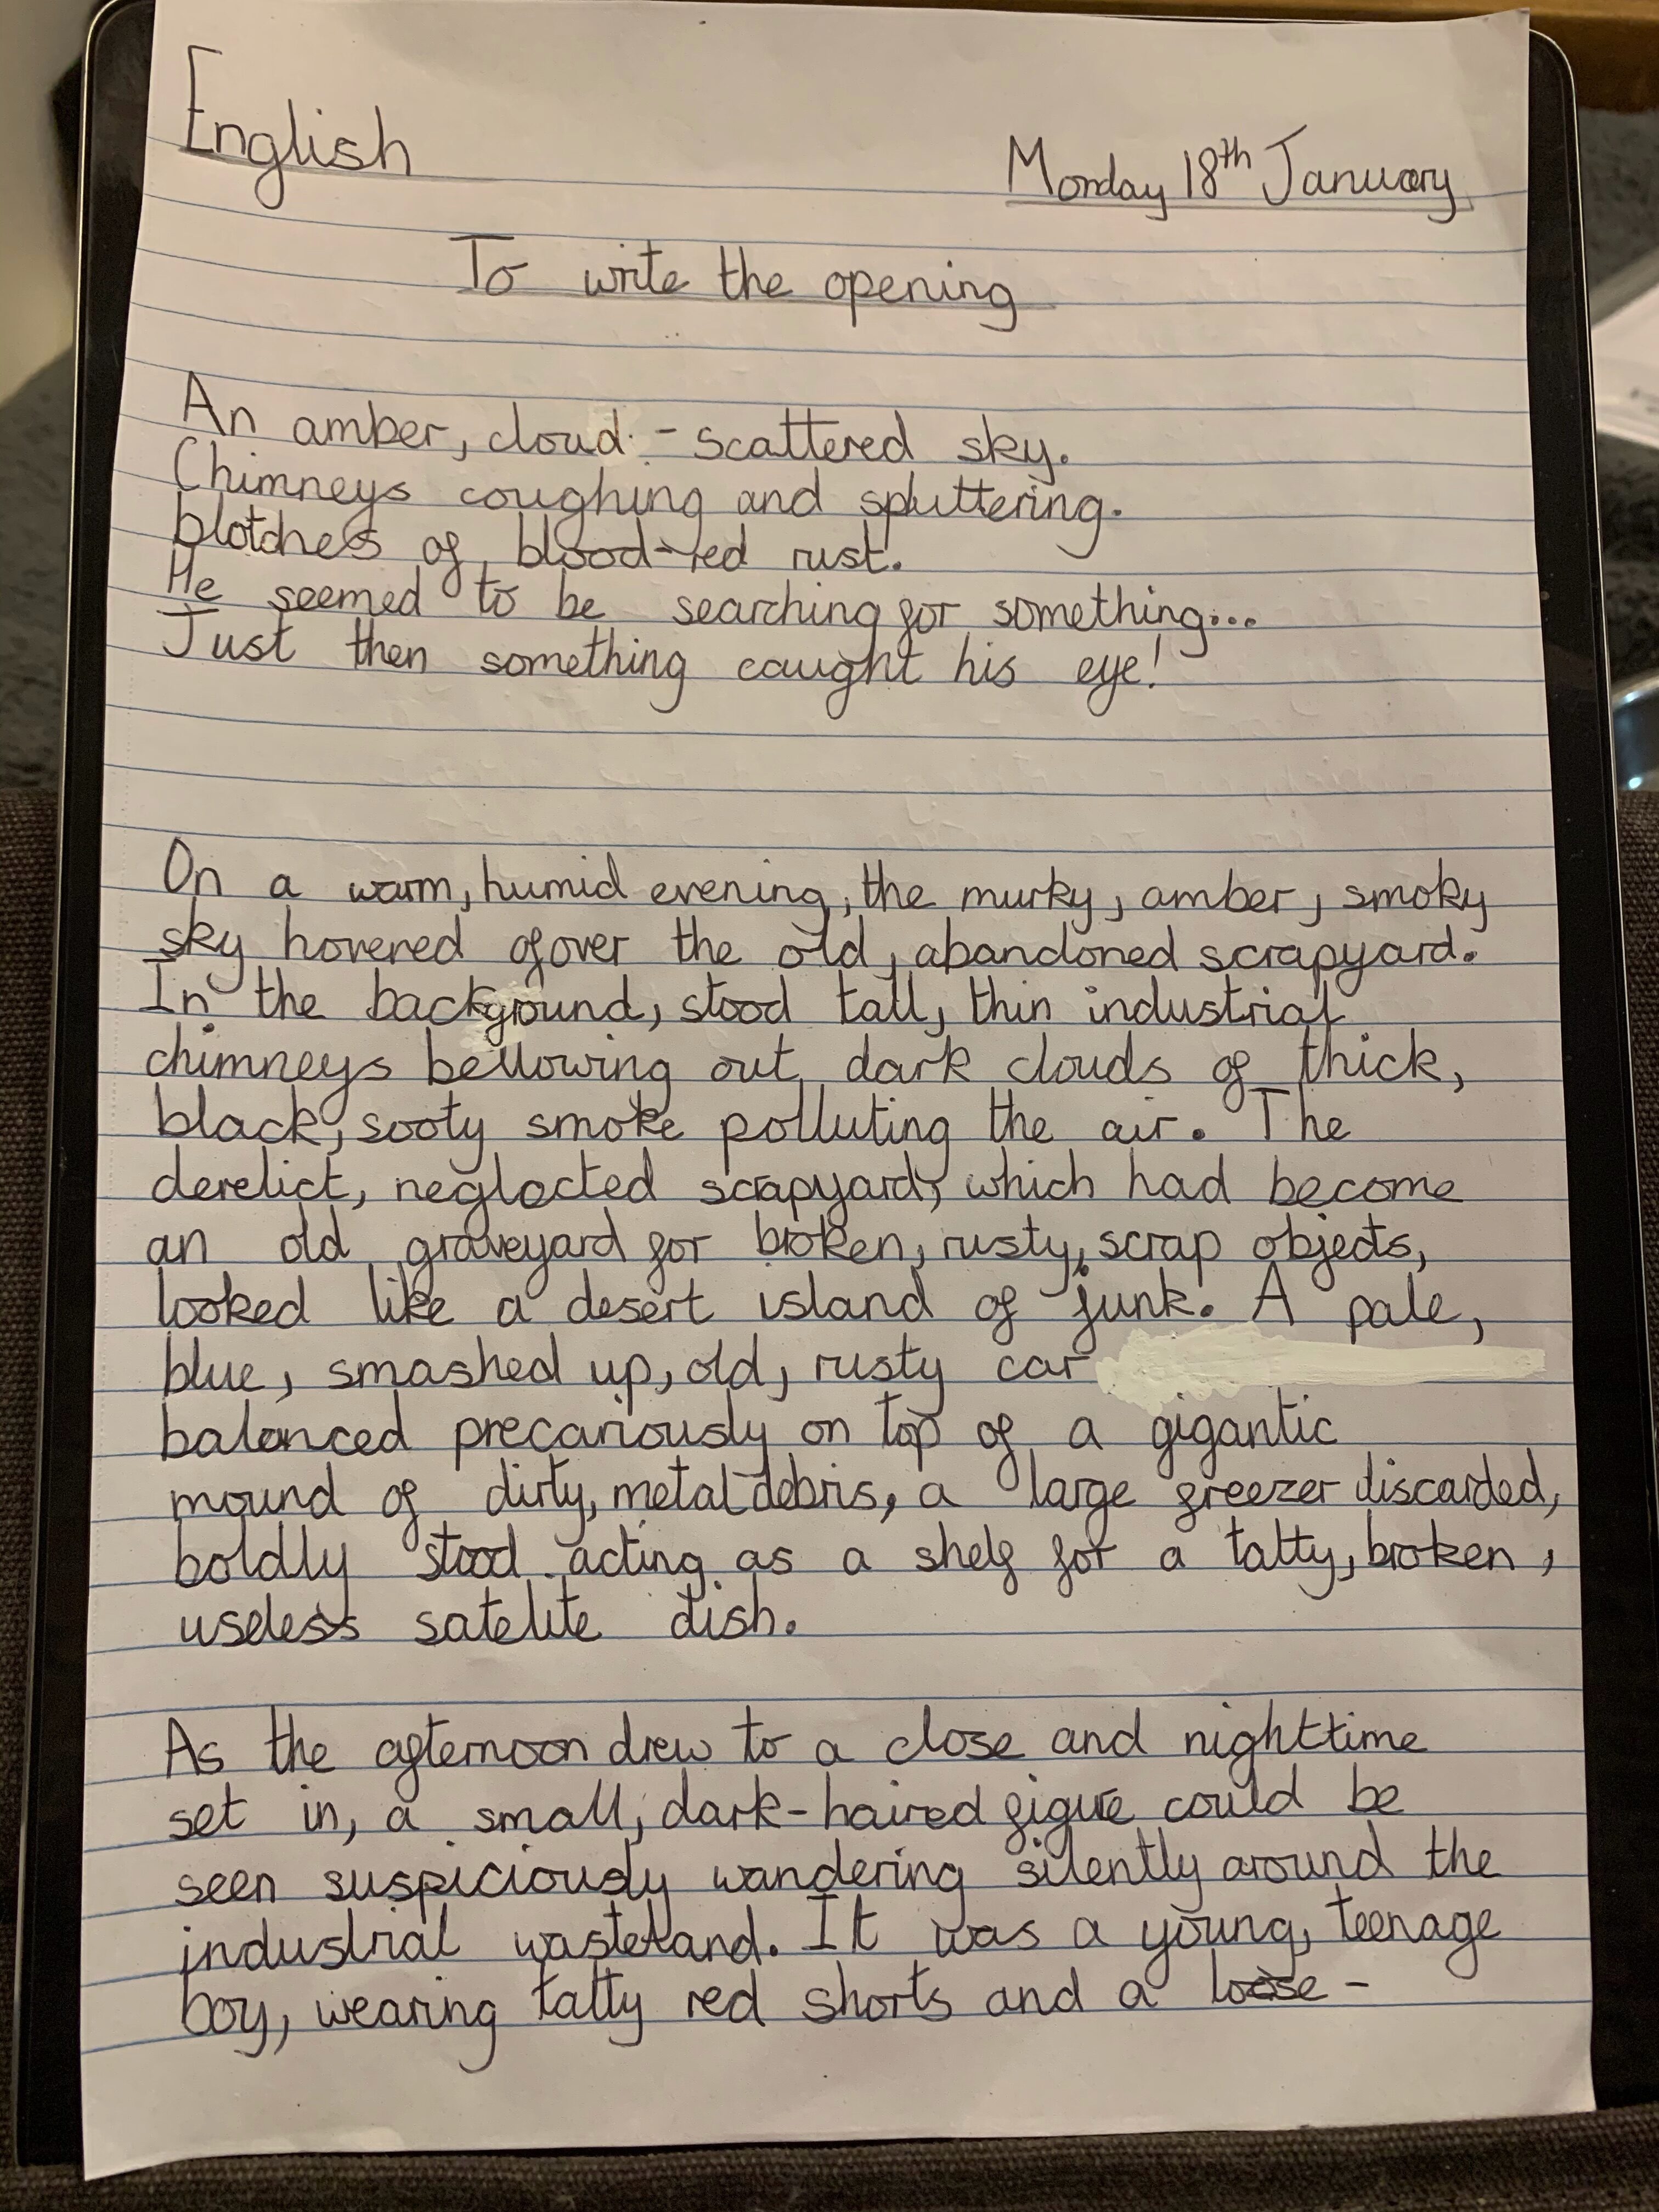 English
Monday 18th January
To write the opening
An amber, cloud-scattered sky.
Chimneys coughing and spluttering.
blotches of blood-red rust.
He seemed to be searching for something...
Just then something caught his eye!
On a warm, humid evening, the murky, amber, smoky
sky hovered over the old, abandoned scrapyard.
In the background, stood tall, thin industrial
chimneys bellowing out dark clouds of thick,
black, sooty smoke polluting the air. The
derelict, neglected scrapyard, which had become
an old graveyard for broken, rusty, scrap objects,
looked like a desert island of junk. A pale,
blue, smashed up, old, rusty car
balanced precariously on top of a gigantic
mound of dirty, metal debris, a large freezer discarded,
boldly stood acting as a shelf for a tatty, broken,
useless satelite dish.
As the afternoon drew to a close and nighttime
set in, a small, dark-haired figure could be
seen suspiciously wandering silently around the
industrial wasteland. It was a young, teenage
boy, wearing tatty red shorts and a loose-